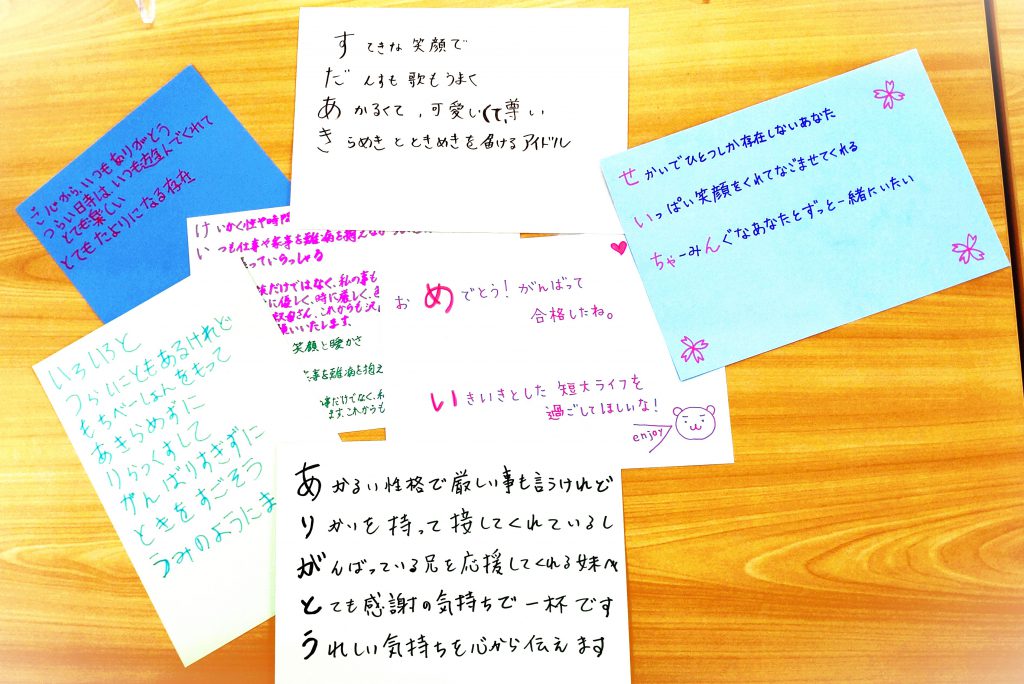 すてきな笑顔で
だんすも歌もうまく
あかるくて、可愛いくて、尊い
きらめきとときめきを届けるアイドル
せかいでひとつしか存在しないあなた
いっぱい笑顔をくれてなごませてくれる
ちゃーみんぐなあなたとずっと一緒にいたい
心から、いつもありがとう
つらい日寺は いつも遊んでくれて
とても楽しい
とてもたよりになる存在
けいかく性や時間
いつも仕事や家事を難病を抱え
っていらっしゃる
だけではなく、私の事も
に優しく、時に厳しく、
さん、これからも
いいたします。
笑顔と暖かさ
事を難病を抱え
事だけでなく、
ます。これからも
おめでとう!がんばって
合格したね。
いきいきとした 短大ライフを
過ごしてほしいな!
enjoy
いろいろと
つらいこともあるけれど
もちべーしょんをもって
あきらめずに
りらっくすして
がんばりすぎずに
ときをすごそう
うみのようにま
あかるい性格で厳しい事も言うけれど
りかいを持って接してくれているし
がんばっている兄を応援してくれる妹へ
とても感謝の気持ちで一杯です
うれしい気持ちを心から伝えます